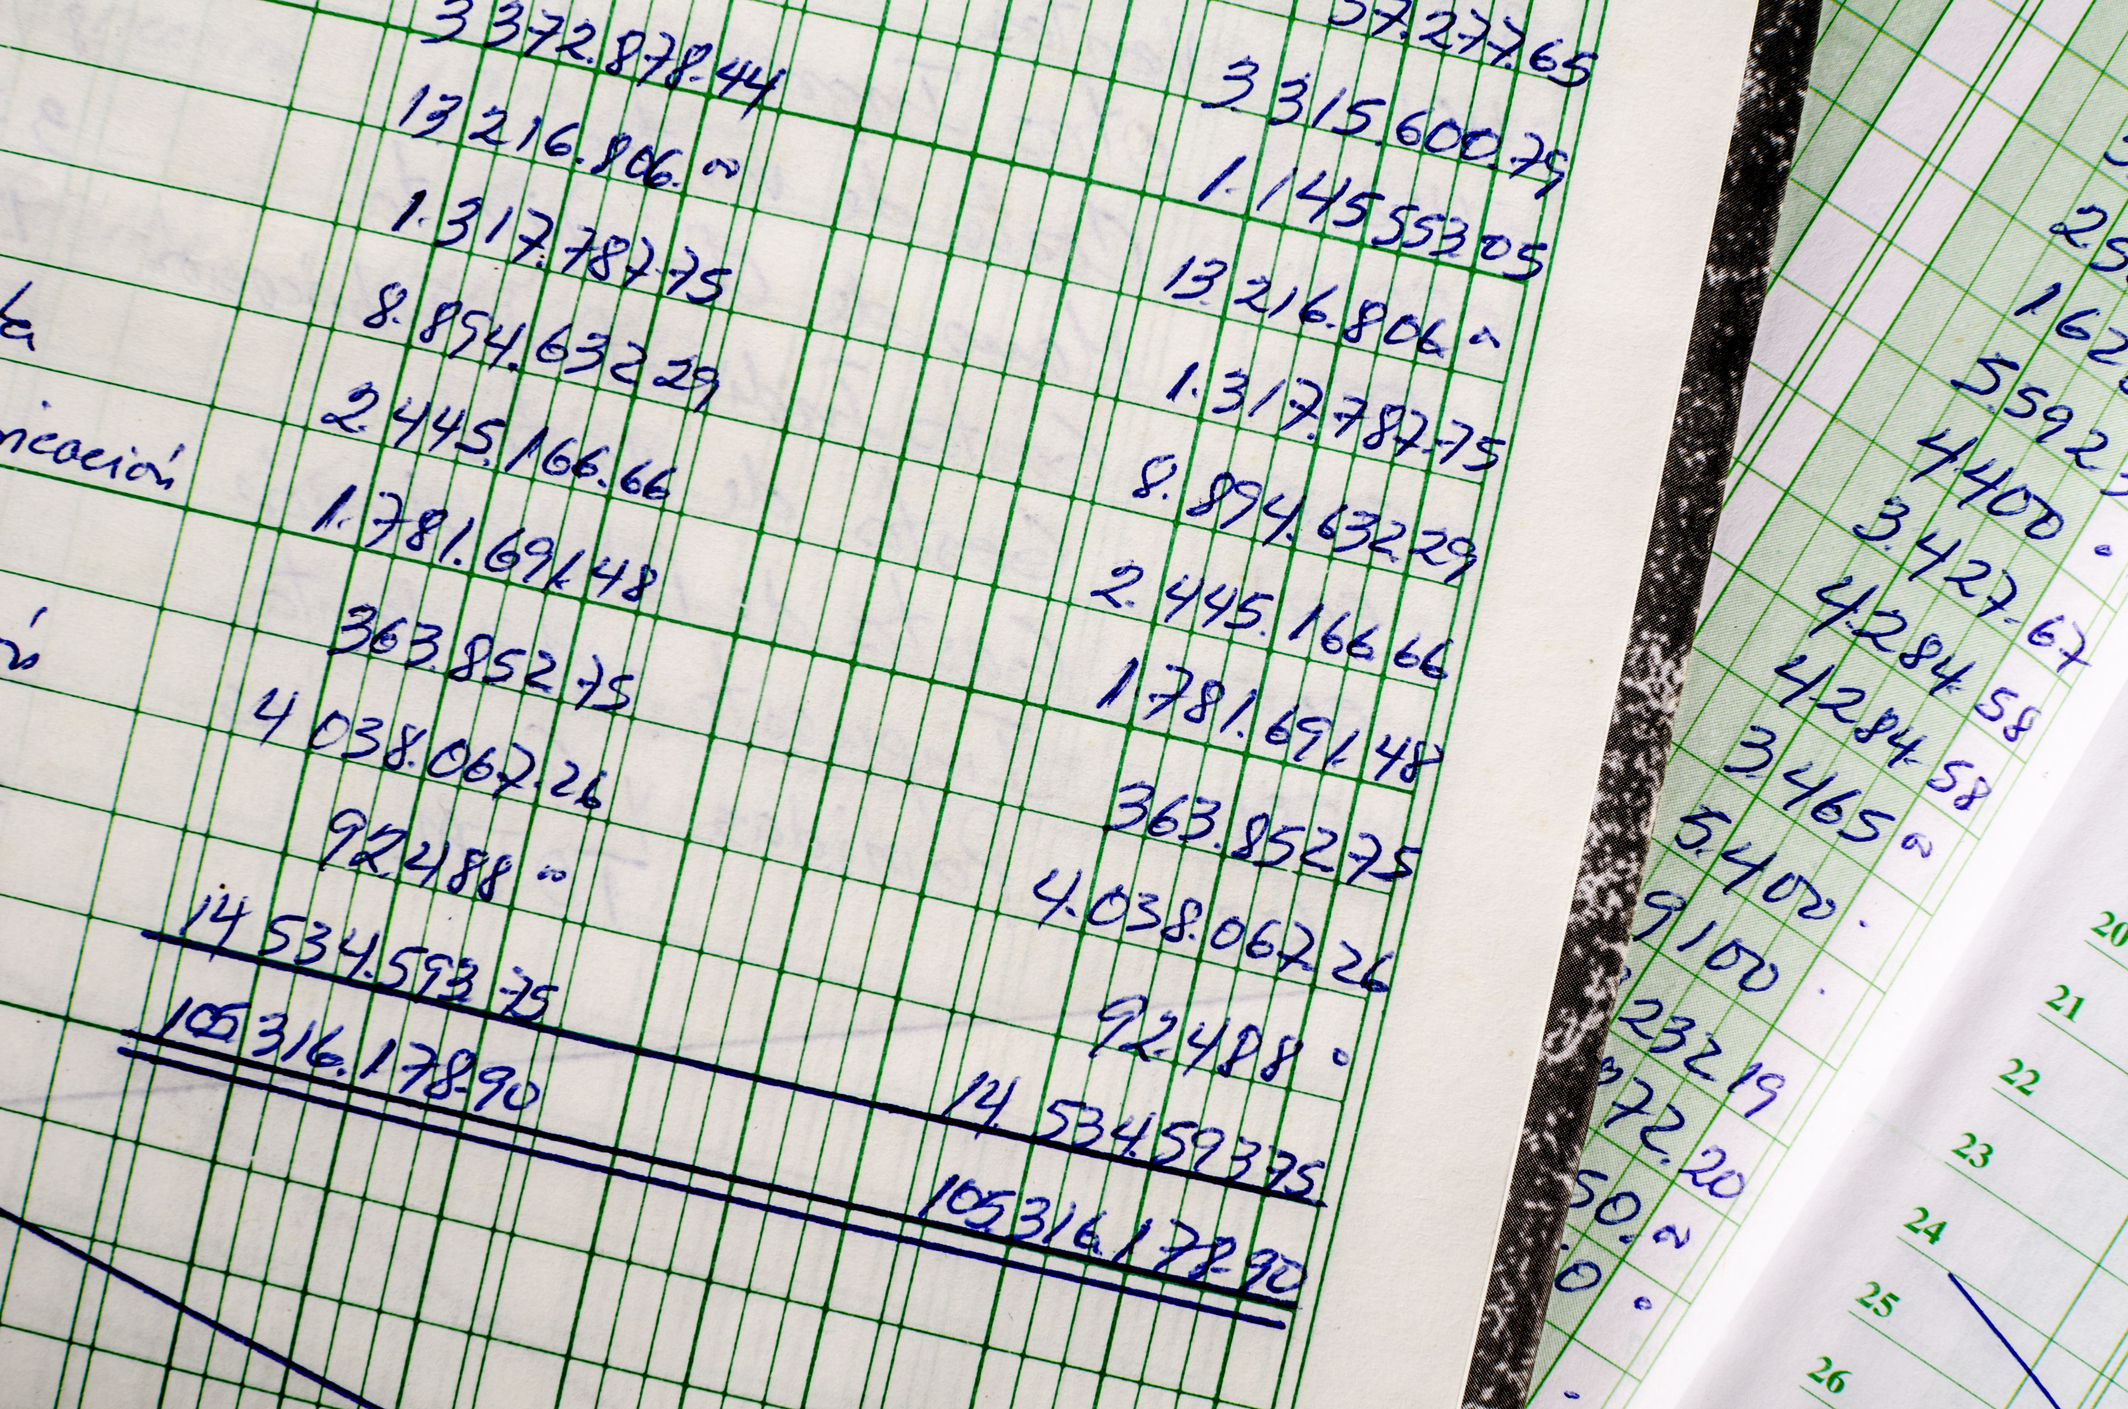 57.277.65
3 372.878.44 3 315.600.79
13 216.806. 00 1.145 553 05
1.317.787.75 13.216.806 00
8.894.632 29 1.317.787.75
2.445.166.66 8.894.632.29
ricación 1.781.691.48 2.445.166.66
363.852 75 1.781.691.48
4 038.067.26 363.852 75
92.488 00 4.038.067.26
14 534.593 75 92.488
105 316.178.90 14.534.593 75
105 316.178.90
5592
4400
3.427.67
4.284.58
4284.58
3.465 00
5.400
9100
232.19
72.20
50.
20
21
22
23
24
25
26